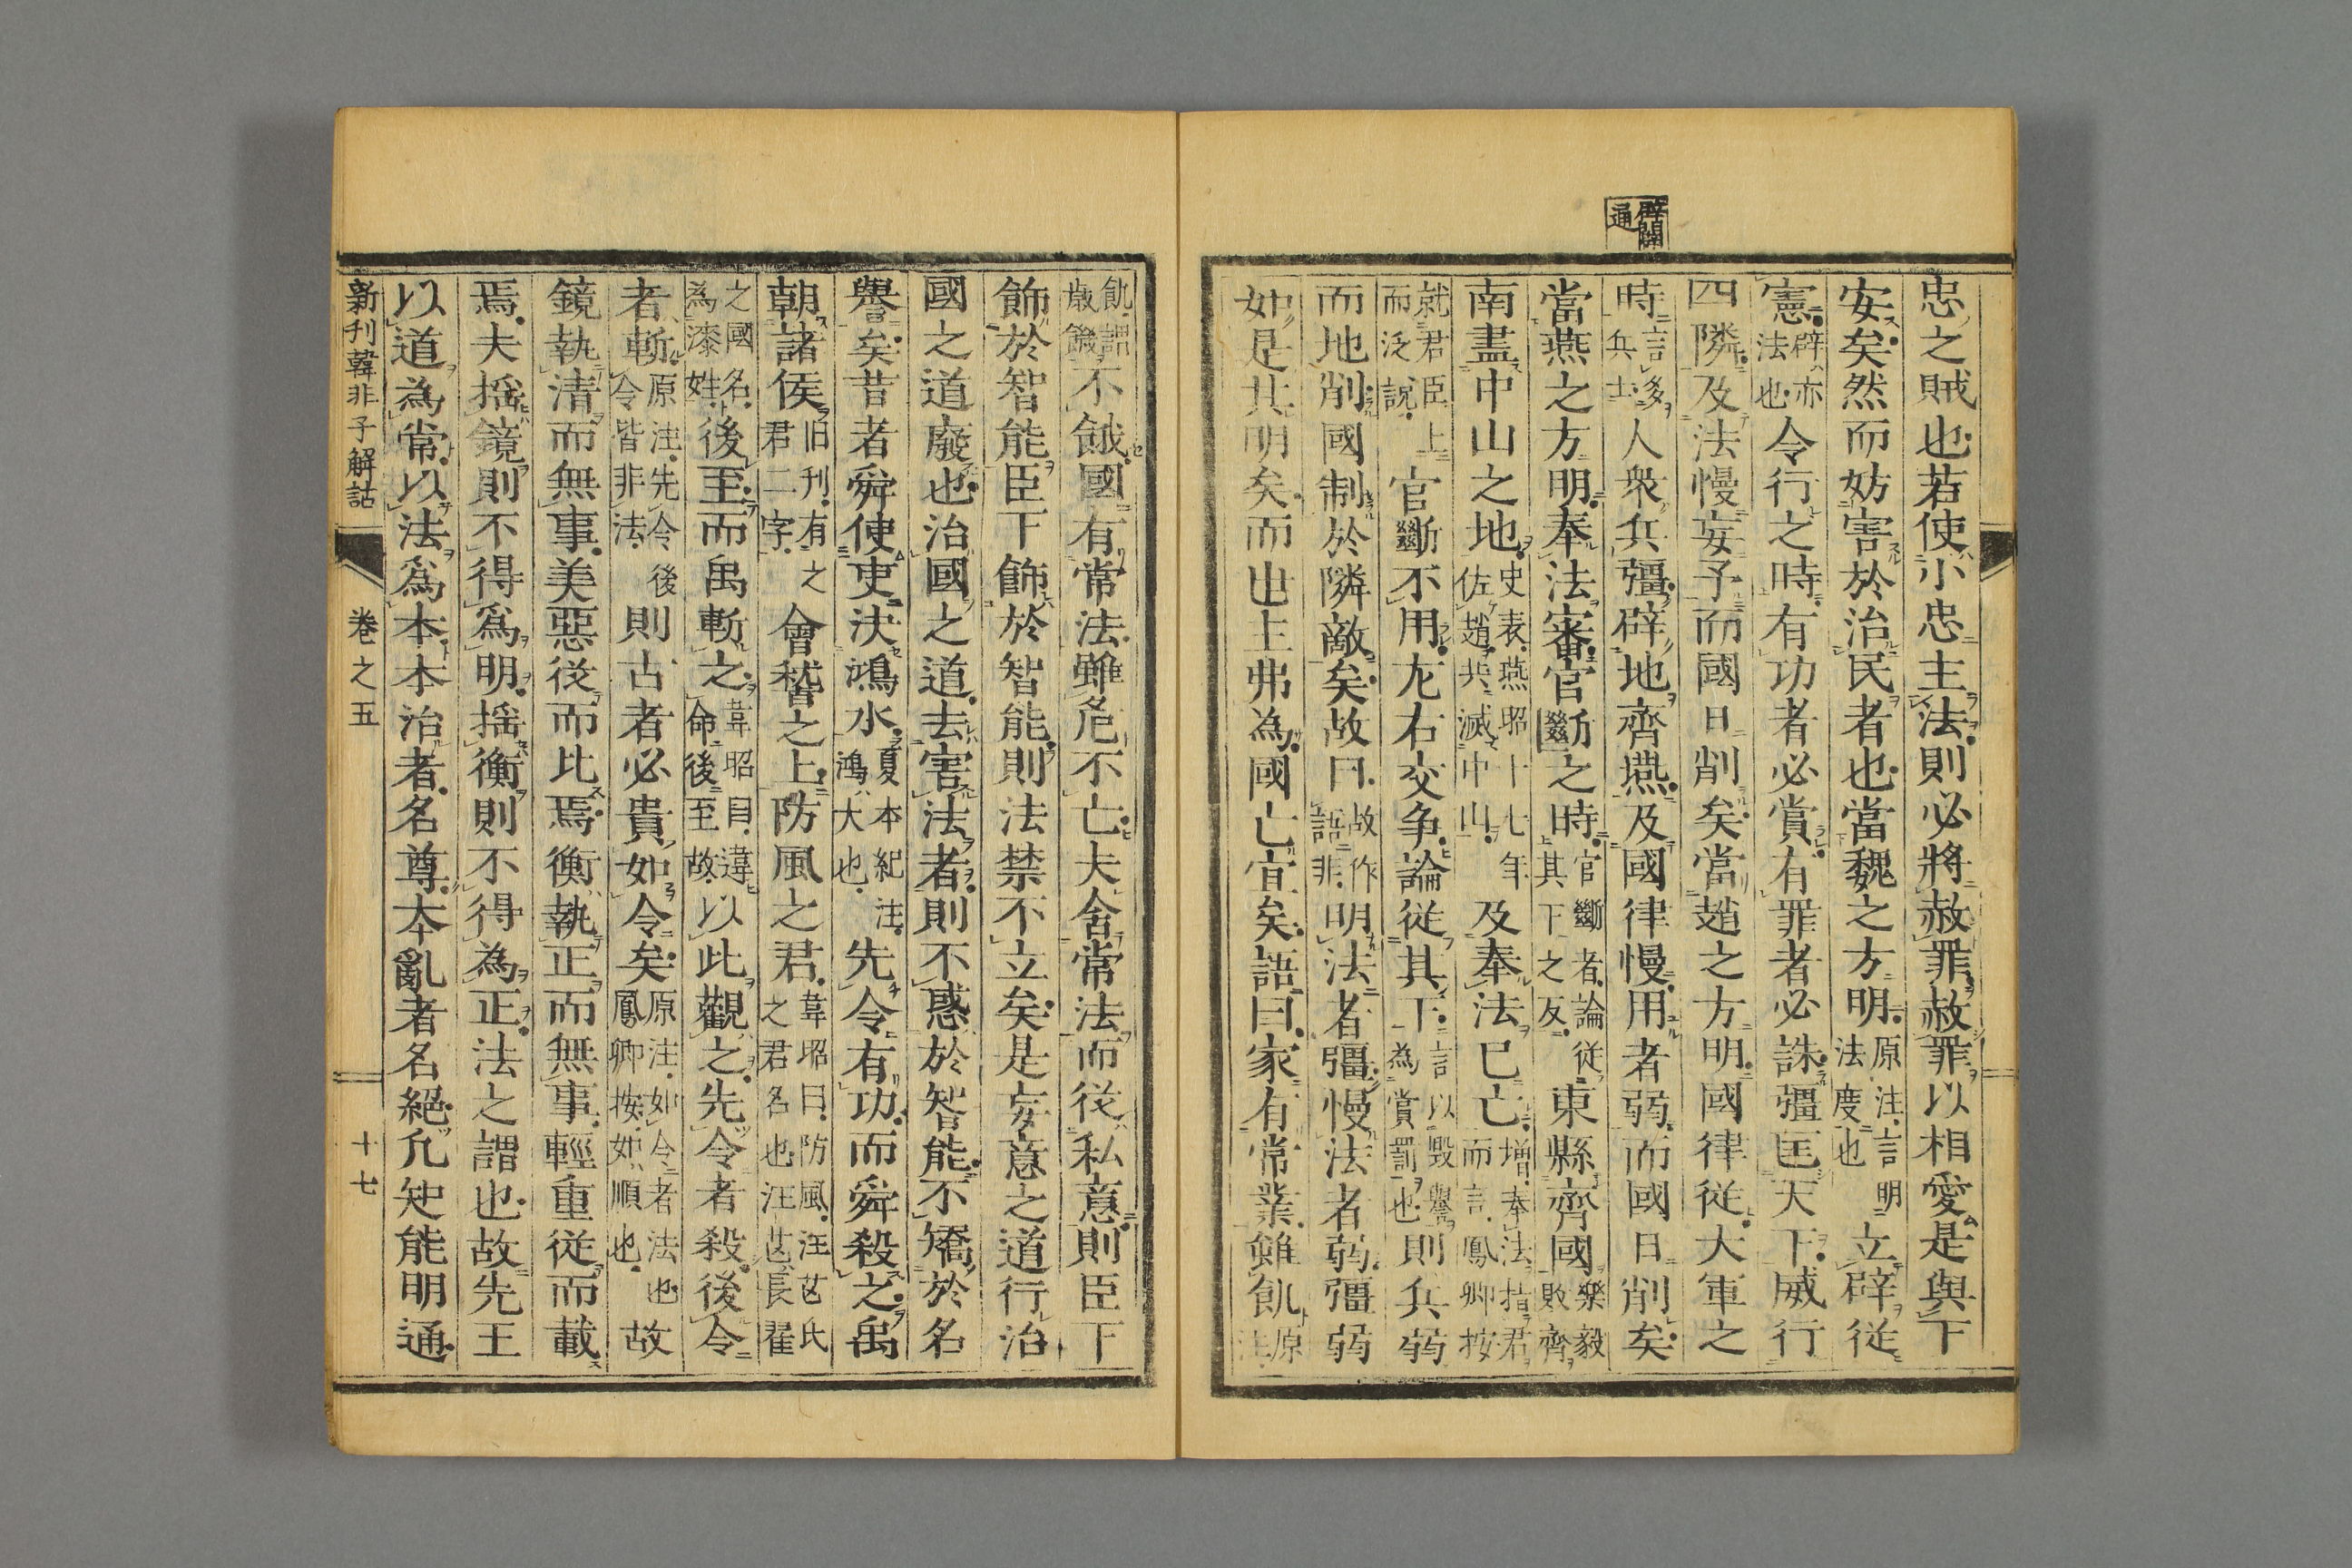 辟闢
通
忠之賊也若使小忠主法則必將赦罪赦罪以相愛是與下
安矣然而妨害於治民者也當魏之方明原注言明法度也立辟從
憲辟亦法也令行之時有功者必賞有罪者必誅彊匡天下威行
四隣及法慢妄予而國日削矣當趙之方明國律從大軍之
時言多兵士人衆兵彊辟地齊燕及國律慢用者弱而國日削矣
當燕之方明奉法審官斷之時官斷者論從其下之反東縣齊國樂毅敗齊
南盡中山之地史表燕昭十七年佐趙共滅中山及奉法已亡增奉法指君而言鳳卿按
就君臣上而泛說官斷不用左右交争論從其下言以毀譽為賞罰也則兵弱
而地削國制於隣敵矣故曰故作語非明法者彊慢法者弱彊弱
如是其明矣而世主弗為國亡宜矣語曰家有常業雖飢原注
飢謂歲饑不餓國有常法雖危不亡夫舍常法而從私意則臣下
飾於智能臣下飾於智能則法禁不立矣是妄意之道行治
國之道廢也治國之道去害法者則不惑於智能不矯於名
譽矣昔者舜使吏決鴻水夏本紀注鴻大也先令有功而舜殺之禹
朝諸侯旧刊有之君二字會稽之上防風之君韋昭曰防風汪芒氏之君名也汪芒長翟
之國名為漆姓後至而禹斬之韋昭曰違命後至故以此觀之先令者殺後令
者斬原注先令後令皆非法則古者必貴如令矣原注如令者法也鳳卿按如順也故
鏡執清而無事美惡從而比焉衡執正而無事輕重從而載
焉夫揺鏡則不得爲明揺衡則不得為正法之謂也故先王
以道為常以法爲本本治者名尊本亂者名絕凢知能明通
新刊韓非子解詁 卷之五 十七